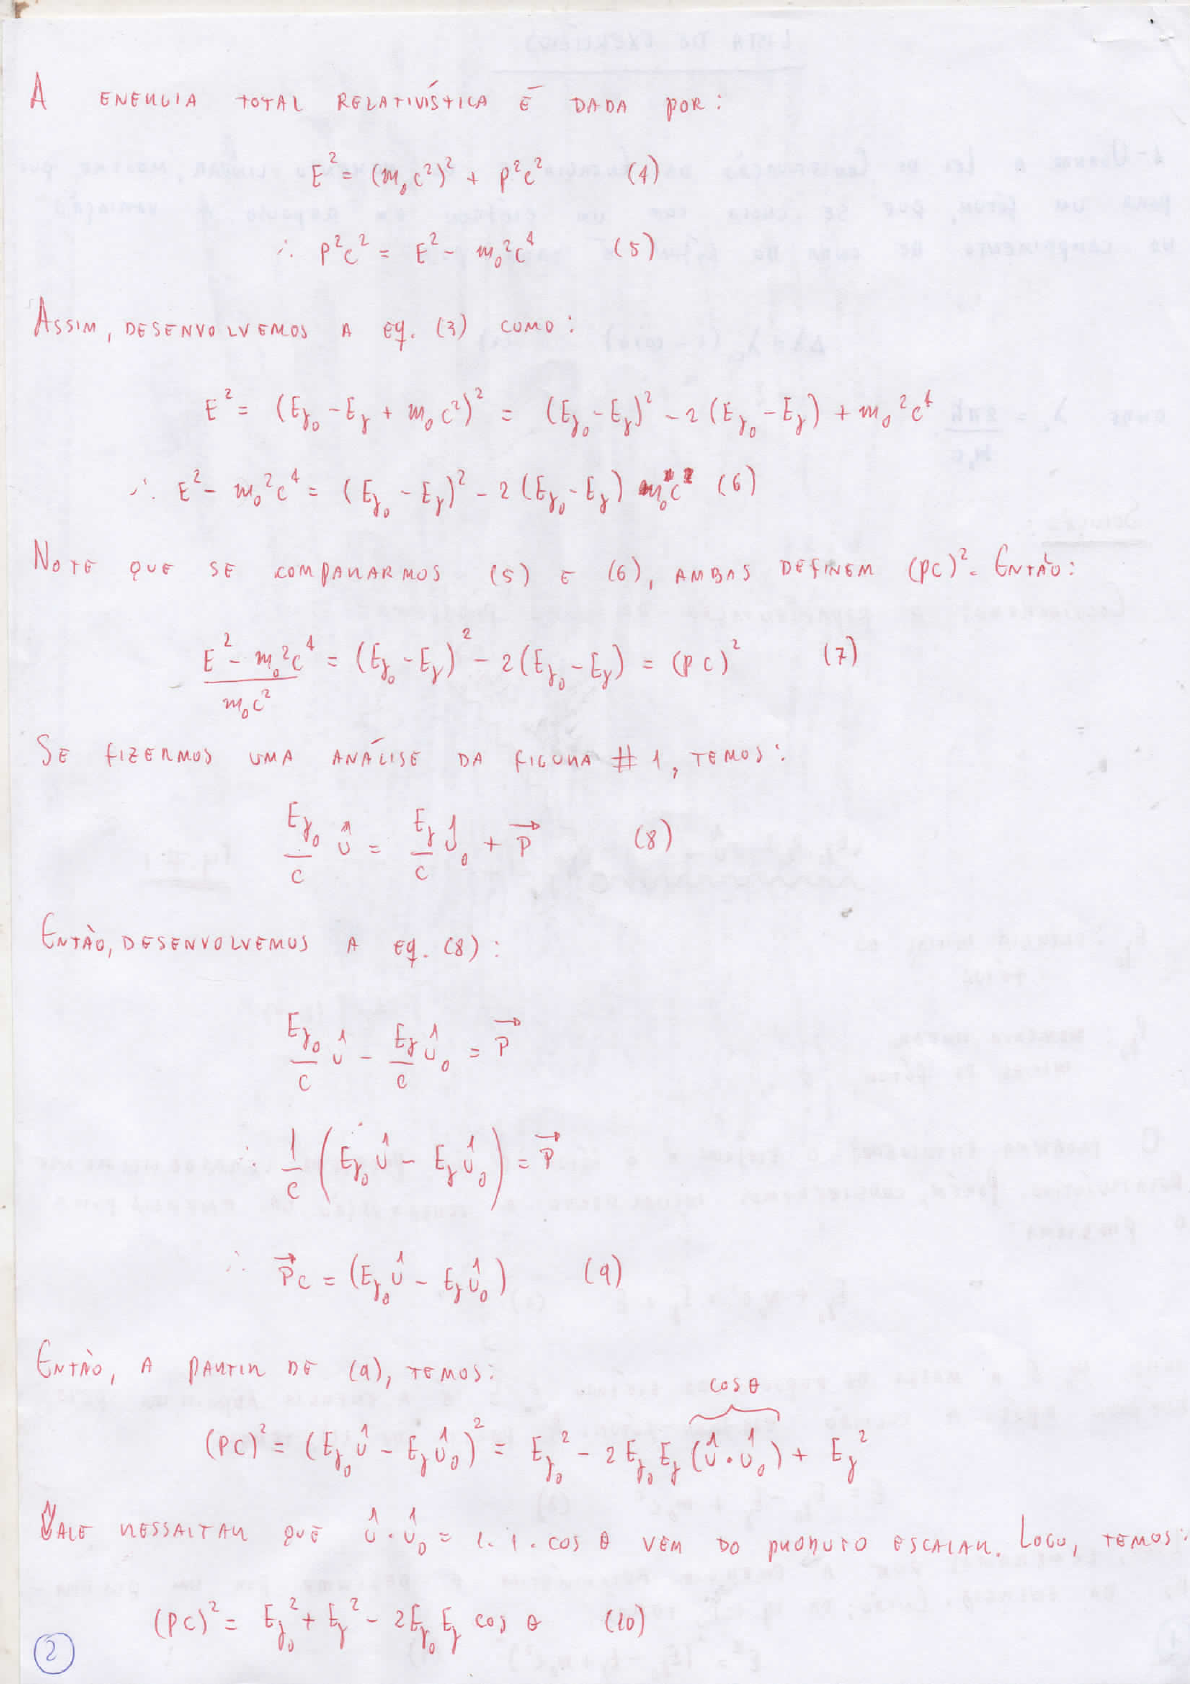 A ENERGIA TOTAL RELATIVÍSTICA É DADA POR:
E² = (m₀c²)² + p²c² (4)
∴ p²c² = E² - m₀²c⁴ (5)
ASSIM, DESENVOLVEMOS A eq. (3) COMO:
E² = (Eγ₀ - Eγ + m₀c²)² = (Eγ₀ - Eγ)² - 2(Eγ₀ - Eγ) + m₀²c⁴
∴ E² - m₀²c⁴ = (Eγ₀ - Eγ)² - 2(Eγ₀ - Eγ) m₀c² (6)
NOTE QUE SE COMPARARMOS (5) E (6), AMBAS DEFINEM (pc)². ENTÃO:
E² - m₀²c⁴ / m₀c² = (Eγ₀ - Eγ)² - 2(Eγ₀ - Eγ) = (pc)² (7)
SE FIZERMOS UMA ANÁLISE DA FIGURA #1, TEMOS:
Eγ₀/c û = Eγ/c û₀ + p⃗ (8)
ENTÃO, DESENVOLVEMOS A eq. (8):
Eγ₀/c û - Eγ/c û₀ = p⃗
∴ 1/c (Eγ₀ û - Eγ û₀) = p⃗
∴ p⃗c = (Eγ₀ û - Eγ û₀) (9)
ENTÃO, A PARTIR DE (9), TEMOS:
cos θ
(pc)² = (Eγ₀ û - Eγ û₀)² = Eγ₀² - 2Eγ₀Eγ (û · û₀) + Eγ²
VALE RESSALTAR QUE û · û₀ = 1 . 1 . cos θ VEM DO PRODUTO ESCALAR. LOGO, TEMOS:
(pc)² = Eγ₀² + Eγ² - 2Eγ₀Eγ cos θ (10)
2